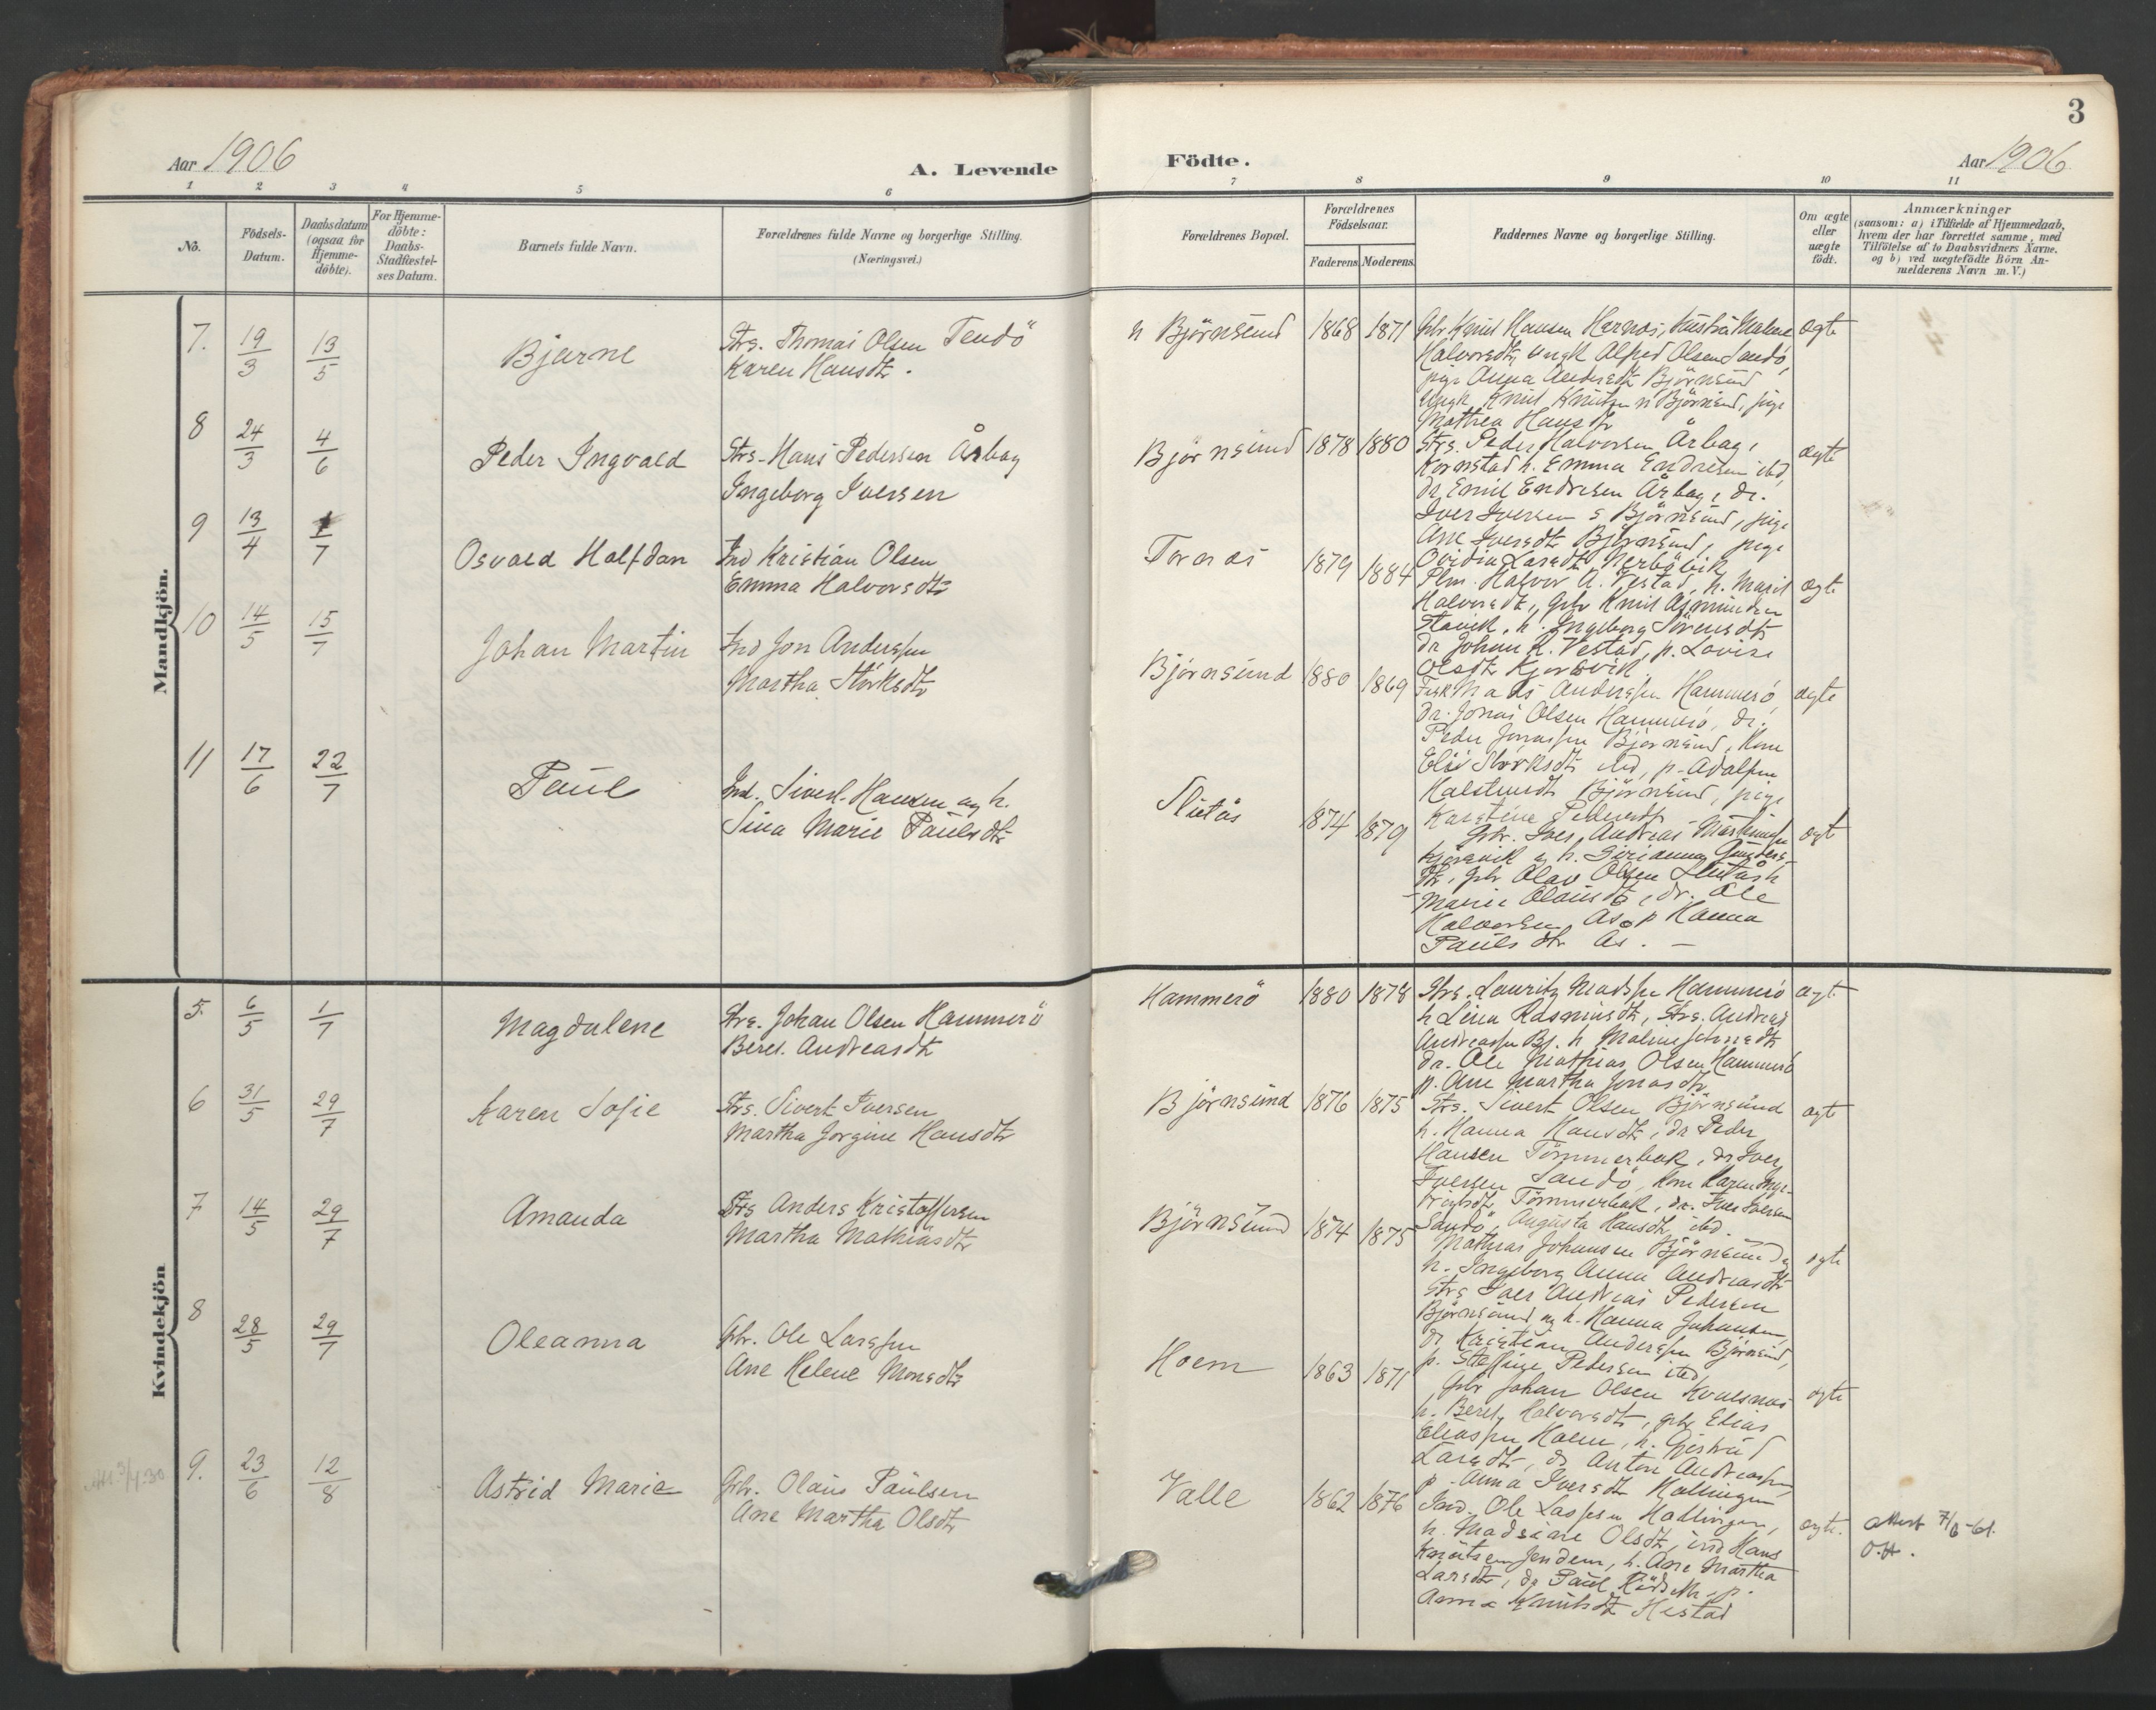 3
Aar 1906
A. Levende
Födte.
Aar 1906
1 2 3 4 5 6 7 8 9 10 11
No.
Födsels-Datum.
Daabsdatum (ogsaa for Hjemme-döbte).
For Hjemme-döbte: Daabs-Stadfœstel-ses Datum.
Barnets fulde Navn.
Forœldrenes fulde Navne og borgerlige Stilling.
(Nœringsvei.)
Forœldrenes Bopœl.
Forœldrenes Födselsaar.
Faderens. Moderens.
Faddernes Navne og borgerlige Stilling.
Om œgte eller uœgte födt.
Anmœrkninger
(saasom: a) i Tilfœlde af Hjemmedaab,
hvem der har forrettet samme, med
Tilföielse af to Daabsvidners Navne,
og b) ved uœgtefödte Börn An-
melderens Navn m. V.)
Mandkjön.
7. 19/3 13/5 Bjarne
Strs. Thomas Olsen Sandö
Karen Hansdtr.
n Björnsund 1868 1871
Gbr Knut Hansen Harnæs, Hustru Malene
Halvorsdtr, ungk Alfred Olsen Sandö,
pige Anna Andersdtr Björnsund
Ungk. Knut Knutsen n Björnsund, pige
Mathea Hansdtr
ægte
8 24/3 4/6 Peder Ingvald
Strs. Hans Pedersen Årbog
Ingeborg Iversen
Björnsund 1878 1880
Strs. Peder Halvorsen Årbog,
Kornstad h. Emma Endresen ibd,
dr. Emil Endresen Årbog, dr.
Iver Iversen s Björnsund, pige
Ane Iversdtr Björnsund, pige
Ovidia Larsdtr
ægte
9 13/4 1/7 Osvald Halfdan
Ind Kristian Olsen
Emma Halvorsdtr
Tornæs 1879 1884
Plm. Halvor A. Vestad, h. Marit
Halvorsdtr, gbr Knut Asmundsen
Stavik, h. Ingeborg Sörensdtr
dr Johan K. Vestad, p. Lovise
Olsdtr Kjørsvik
ægte
10 14/5 15/7 Johan Martin
Ind Jon Anderssen
Martha Størksdtr
Björnsund 1880 1869
Fisk Mads Anderssen Hammerö,
dr. Jonas Olsen Hammerö, dr.
Peder Jonassen Björnsund, Kone
Elsi Størksdtr ibd, p. Adolfine
Halstensdtr Björnsund, pige
Karstine Pedersdtr
ægte
11 17/6 22/7 Paul
Ind. Sivert Hansen og h.
Sina Marie Paulsdtr
Slutås 1874 1879
Gbr. Iver Andreas Martinussen
Kjörsvik og h. Gurianna Gunders-
dtr, gbr Olav Olsen Slutås h
Marie Olausdtr, dr. Ole
Halvorsen Ås, p Hanna
Paulsdtr Ås. —
ægt
Kvindekjön
5. 6/5 1/7 Magdalene
Strs. Johan Olsen Hammerö
Beret. Andreasdtr
Hammerö 1880 1878
Strs. Lauritz Madssen Hammerö
h Lina Rasmusdtr, Strs. Andreas
Andreassen Bj. h Maline
dr. Ole Mathias Olsen Hammerö
p. Ane Martha Jonasdtr
ægt.
6 31/5 29/7 Karen Sofie
Strs. Sivert Iversen
Martha Jorgine Hansdtr
Björnsund 1876 1875
Strs. Sivert Olsen Björnsund
h. Hanna Hansdtr, dr Peder
Hansen Tömmerbak, dr Iver
Iversen Sandö, Kone Karen
Tömmerbak, dr. Iver Iversen
Sandö, Augusta Hansdtr ibd.
ægt
7 14/5 29/7 Amanda
Strs Anders Kristoffersen
Martha Mathiasdtr
Björnsund 1874 1875
Mathias Johansen Björnsund og
h. Ingeborg Anna Andreasdtr
Strs Iver Andreas Pedersen
Björnsund og h. Hanna Johansen,
dr Kristian Anderssen Björnsund,
p. Steffine Pedersen ibd,
ægte
8 28/5 29/7 Oleanna
Gbr. Ole Larssen
Ane Helene Monsdtr
Hoem 1863 1871
Gbr Johan Olsen Kvalsnæs
h. Beret Halvorsdtr, gbr Elias
Eliassen Hoem, h. Gjertrud
Larsdtr, dr Anton Andreassen,
p. Anna Iversdtr Hollingen
ægte
9. 23/6 12/8 Astrid Marie
Gbr. Olaus Paulsen
Ane Martha Olsdtr
Valle 1862 1876
Ind. Ole Larssen Hollingen,
h. Madsine Olsdtr, ind Hans
Knutsen Jendem, h. Ane Martha
Larsdtr, dr Paul Rödseth, p.
Anna Knutsdtr Hestad
ægte.
Attest 7/6-61.
O.H.